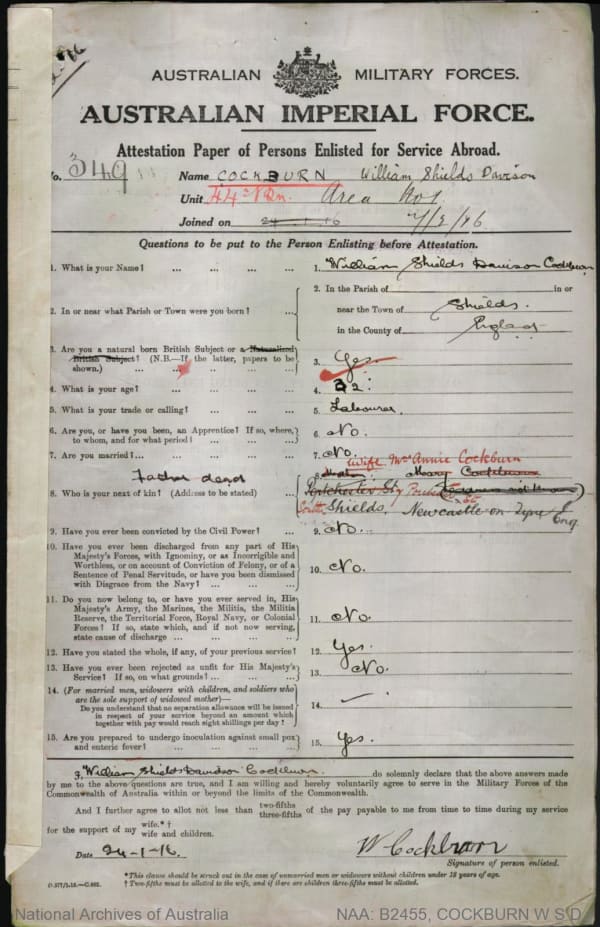 AUSTRALIAN MILITARY FORCES.
AUSTRALIAN IMPERIAL FORCE.
Attestation Paper of Persons Enlisted for Service Abroad.
No. 349 Name COCKBURN William Shields Davison
Unit 44th Bn. Area No 1
Joined on 24-1-16 7/2/16
Questions to be put to the Person Enlisting before Attestation.
1. What is your Name? ... ... ... ... 1. William Shields Davison Cockburn
2. In or near what Parish or Town were you born? ... 2. In the Parish of in or
near the Town of Shields.
in the County of England
3. Are you a natural born British Subject or a Naturalized
British Subject? (N.B.—If the latter, papers to be
shown.) ... ... ... ... 3. Yes.
4. What is your age? ... ... ... ... 4. 32.
5. What is your trade or calling? ... ... ... 5. Labourer.
6. Are you, or have you been, an Apprentice? If so, where,
to whom, and for what period? ... ... ... 6. No.
7. Are you married? ... ... ... ... 7. No.
wife Mrs Annie Cockburn
Father dead 8. Mary Cockburn
8. Who is your next of kin? (Address to be stated) ... St
South Shields. Newcastle on Tyne Eng
9. Have you ever been convicted by the Civil Power? ... 9. No.
10. Have you ever been discharged from any part of His
Majesty's Forces, with Ignominy, or as Incorrigible and
Worthless, or on account of Conviction of Felony, or of a
Sentence of Penal Servitude, or have you been dismissed
with Disgrace from the Navy? ... ... ... 10. No.
11. Do you now belong to, or have you ever served in, His
Majesty's Army, the Marines, the Militia, the Militia
Reserve, the Territorial Force, Royal Navy, or Colonial
Forces? If so, state which, and if not now serving,
state cause of discharge ... ... ... ... 11. No.
12. Have you stated the whole, if any, of your previous service? 12. Yes.
13. Have you ever been rejected as unfit for His Majesty's
Service? If so, on what grounds? ... ... ... 13. No.
14. (For married men, widowers with children, and soldiers who
are the sole support of widowed mother)—
Do you understand that no separation allowance will be issued
in respect of your service beyond an amount which
together with pay would reach eight shillings per day? 14. —
15. Are you prepared to undergo inoculation against small pox
and enteric fever? ... ... ... ... 15. Yes.
I, William Shields Davidson Cockburn. do solemnly declare that the above answers made
by me to the above questions are true, and I am willing and hereby voluntarily agree to serve in the Military Forces of the
Commonwealth of Australia within or beyond the limits of the Commonwealth.
And I further agree to allot not less than two-fifths three-fifths of the pay payable to me from time to time during my service
for the support of my wife.*† wife and children.
Date 24-1-16. W Cockburn
Signature of person enlisted.
*This clause should be struck out in the case of unmarried men or widowers without children under 18 years of age.
† Two-fifths must be allotted to the wife, and if there are children three-fifths must be allotted.
National Archives of Australia NAA: B2455, COCKBURN W S D